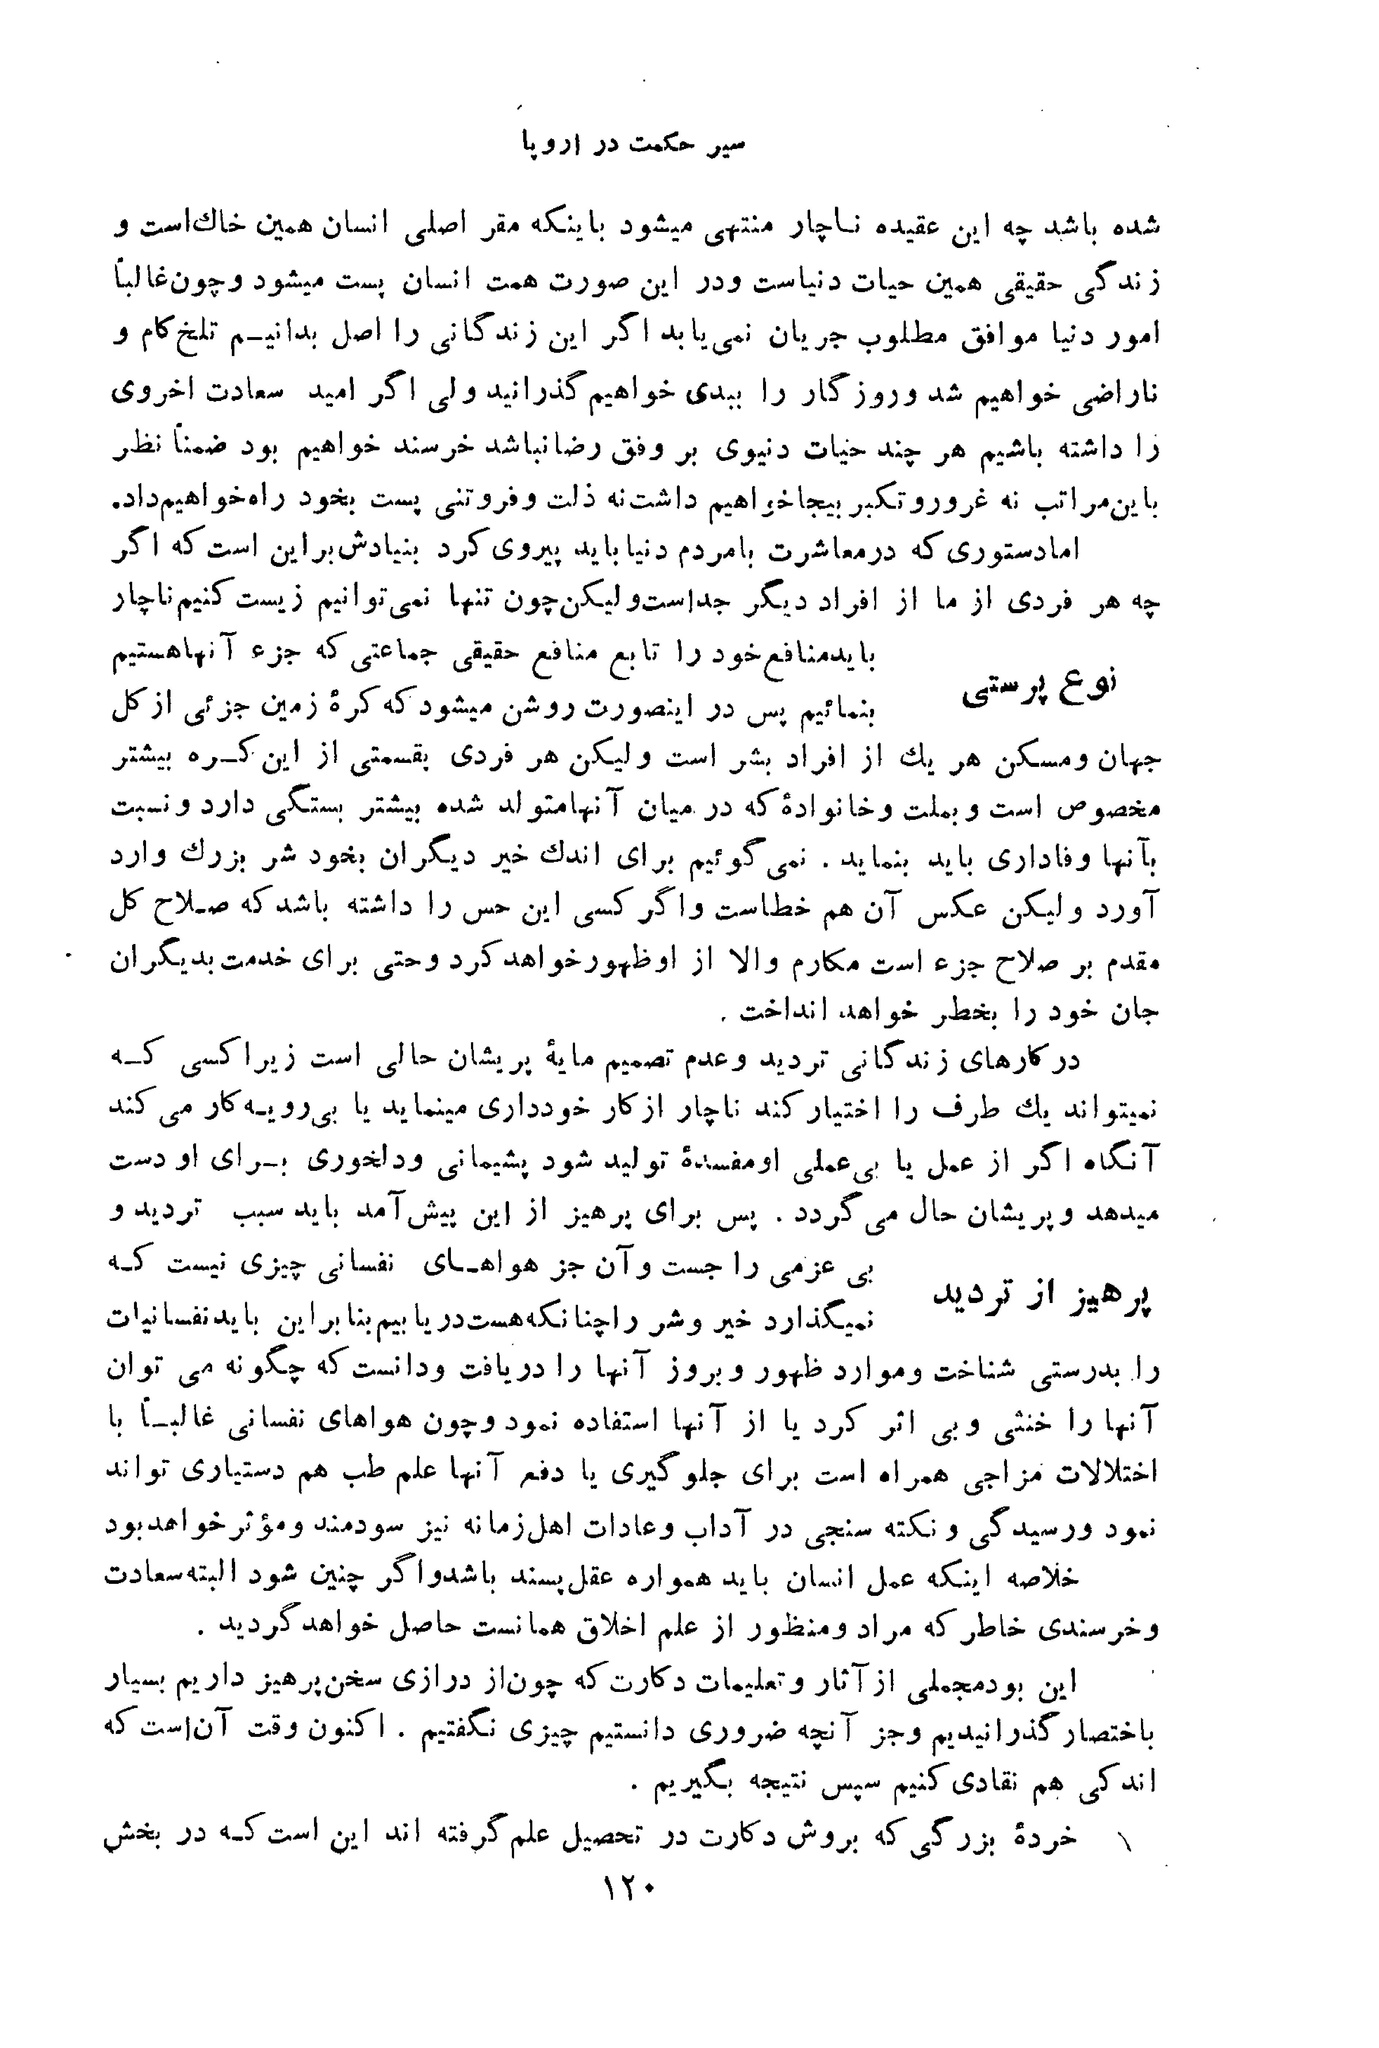 سیر حکمت در اروپا
شده باشد چه این عقیده ناچار منتهی میشود باینکه مقر اصلی انسان همین خاك‌است و
زندگی حقیقی همین حیات دنیاست ودر این صورت همت انسان پست میشود وچون غالباً
امور دنیا موافق مطلوب جریان نمی‌یابد اگر این زندگانی را اصل بدانیم تلخ‌کام و
ناراضی خواهیم شد وروزگار را ببدی خواهیم گذرانید ولی اگر امید سعادت اخروی
را داشته باشیم هر چند حیات دنیوی بر وفق رضا نباشد خرسند خواهیم بود ضمناً نظر
باین‌مراتب نه غرور وتکبر بیجاخواهیم داشت نه ذلت وفروتنی پست بخود راه‌خواهیم‌داد.
امادستوری که درمعاشرت بامردم دنیا باید پیروی کرد بنیادش براین است که اگر
چه هر فردی از ما از افراد دیگر جداست ولیکن چون تنها نمی‌توانیم زیست کنیم ناچار
باید منافع خود را تابع منافع حقیقی جماعتی که جزء آنهاهستیم
نوع پرستی
بنمائیم پس در اینصورت روشن میشود که کرهٔ زمین جزئی از کل
جهان ومسکن هر یك از افراد بشر است ولیکن هر فردی بقسمتی از این کره بیشتر
مخصوص است و بملت وخانوادهٔ که در میان آنهامتولد شده بیشتر بستگی دارد ونسبت
بآنها وفاداری باید بنماید . نمی‌گوئیم برای اندك خیر دیگران بخود شر بزرك وارد
آورد ولیکن عکس آن هم خطاست واگر کسی این حس را داشته باشد که صلاح کل
مقدم بر صلاح جزء است مکارم والا از اوظهورخواهد کرد وحتی برای خدمت بدیگران
جان خود را بخطر خواهد انداخت .
در کارهای زندگانی تردید وعدم تصمیم مایهٔ پریشان حالی است زیرا کسی که
نمیتواند یك طرف را اختیار کند ناچار از کار خودداری مینماید یا بی‌رویه کار می‌کند
آنگاه اگر از عمل یا بی‌عملی اومفسدهٔ تولید شود پشیمانی ودلخوری برای او دست
میدهد وپریشان حال می‌گردد . پس برای پرهیز از این پیش‌آمد باید سبب تردید و
بی عزمی را جست وآن جز هواهای نفسانی چیزی نیست که
پرهیز از تردید
نمیگذارد خیر وشر راچنانکه‌هست دریابیم بنابراین باید نفسانیات
را بدرستی شناخت وموارد ظهور وبروز آنها را دریافت ودانست که چگونه می توان
آنها را خنثی وبی اثر کرد یا از آنها استفاده نمود وچون هواهای نفسانی غالباً با
اختلالات مزاجی همراه است برای جلوگیری یا دفع آنها علم طب هم دستیاری تواند
نمود ورسیدگی ونکته سنجی در آداب وعادات اهل‌زمانه نیز سودمند ومؤثر خواهدبود
خلاصه اینکه عمل انسان باید همواره عقل‌پسند باشدواگر چنین شود البته سعادت
وخرسندی خاطر که مراد ومنظور از علم اخلاق همانست حاصل خواهد گردید .
این بودمجملی از آثار وتعلیمات دکارت که چون‌از درازی سخن پرهیز داریم بسیار
باختصار گذرانیدیم وجز آنچه ضروری دانستیم چیزی نگفتیم . اکنون وقت آن‌است که
اندکی هم نقادی کنیم سپس نتیجه بگیریم .
۱ خردهٔ بزرگی که بروش دکارت در تحصیل علم گرفته اند این است که در بخش
۱۲۰